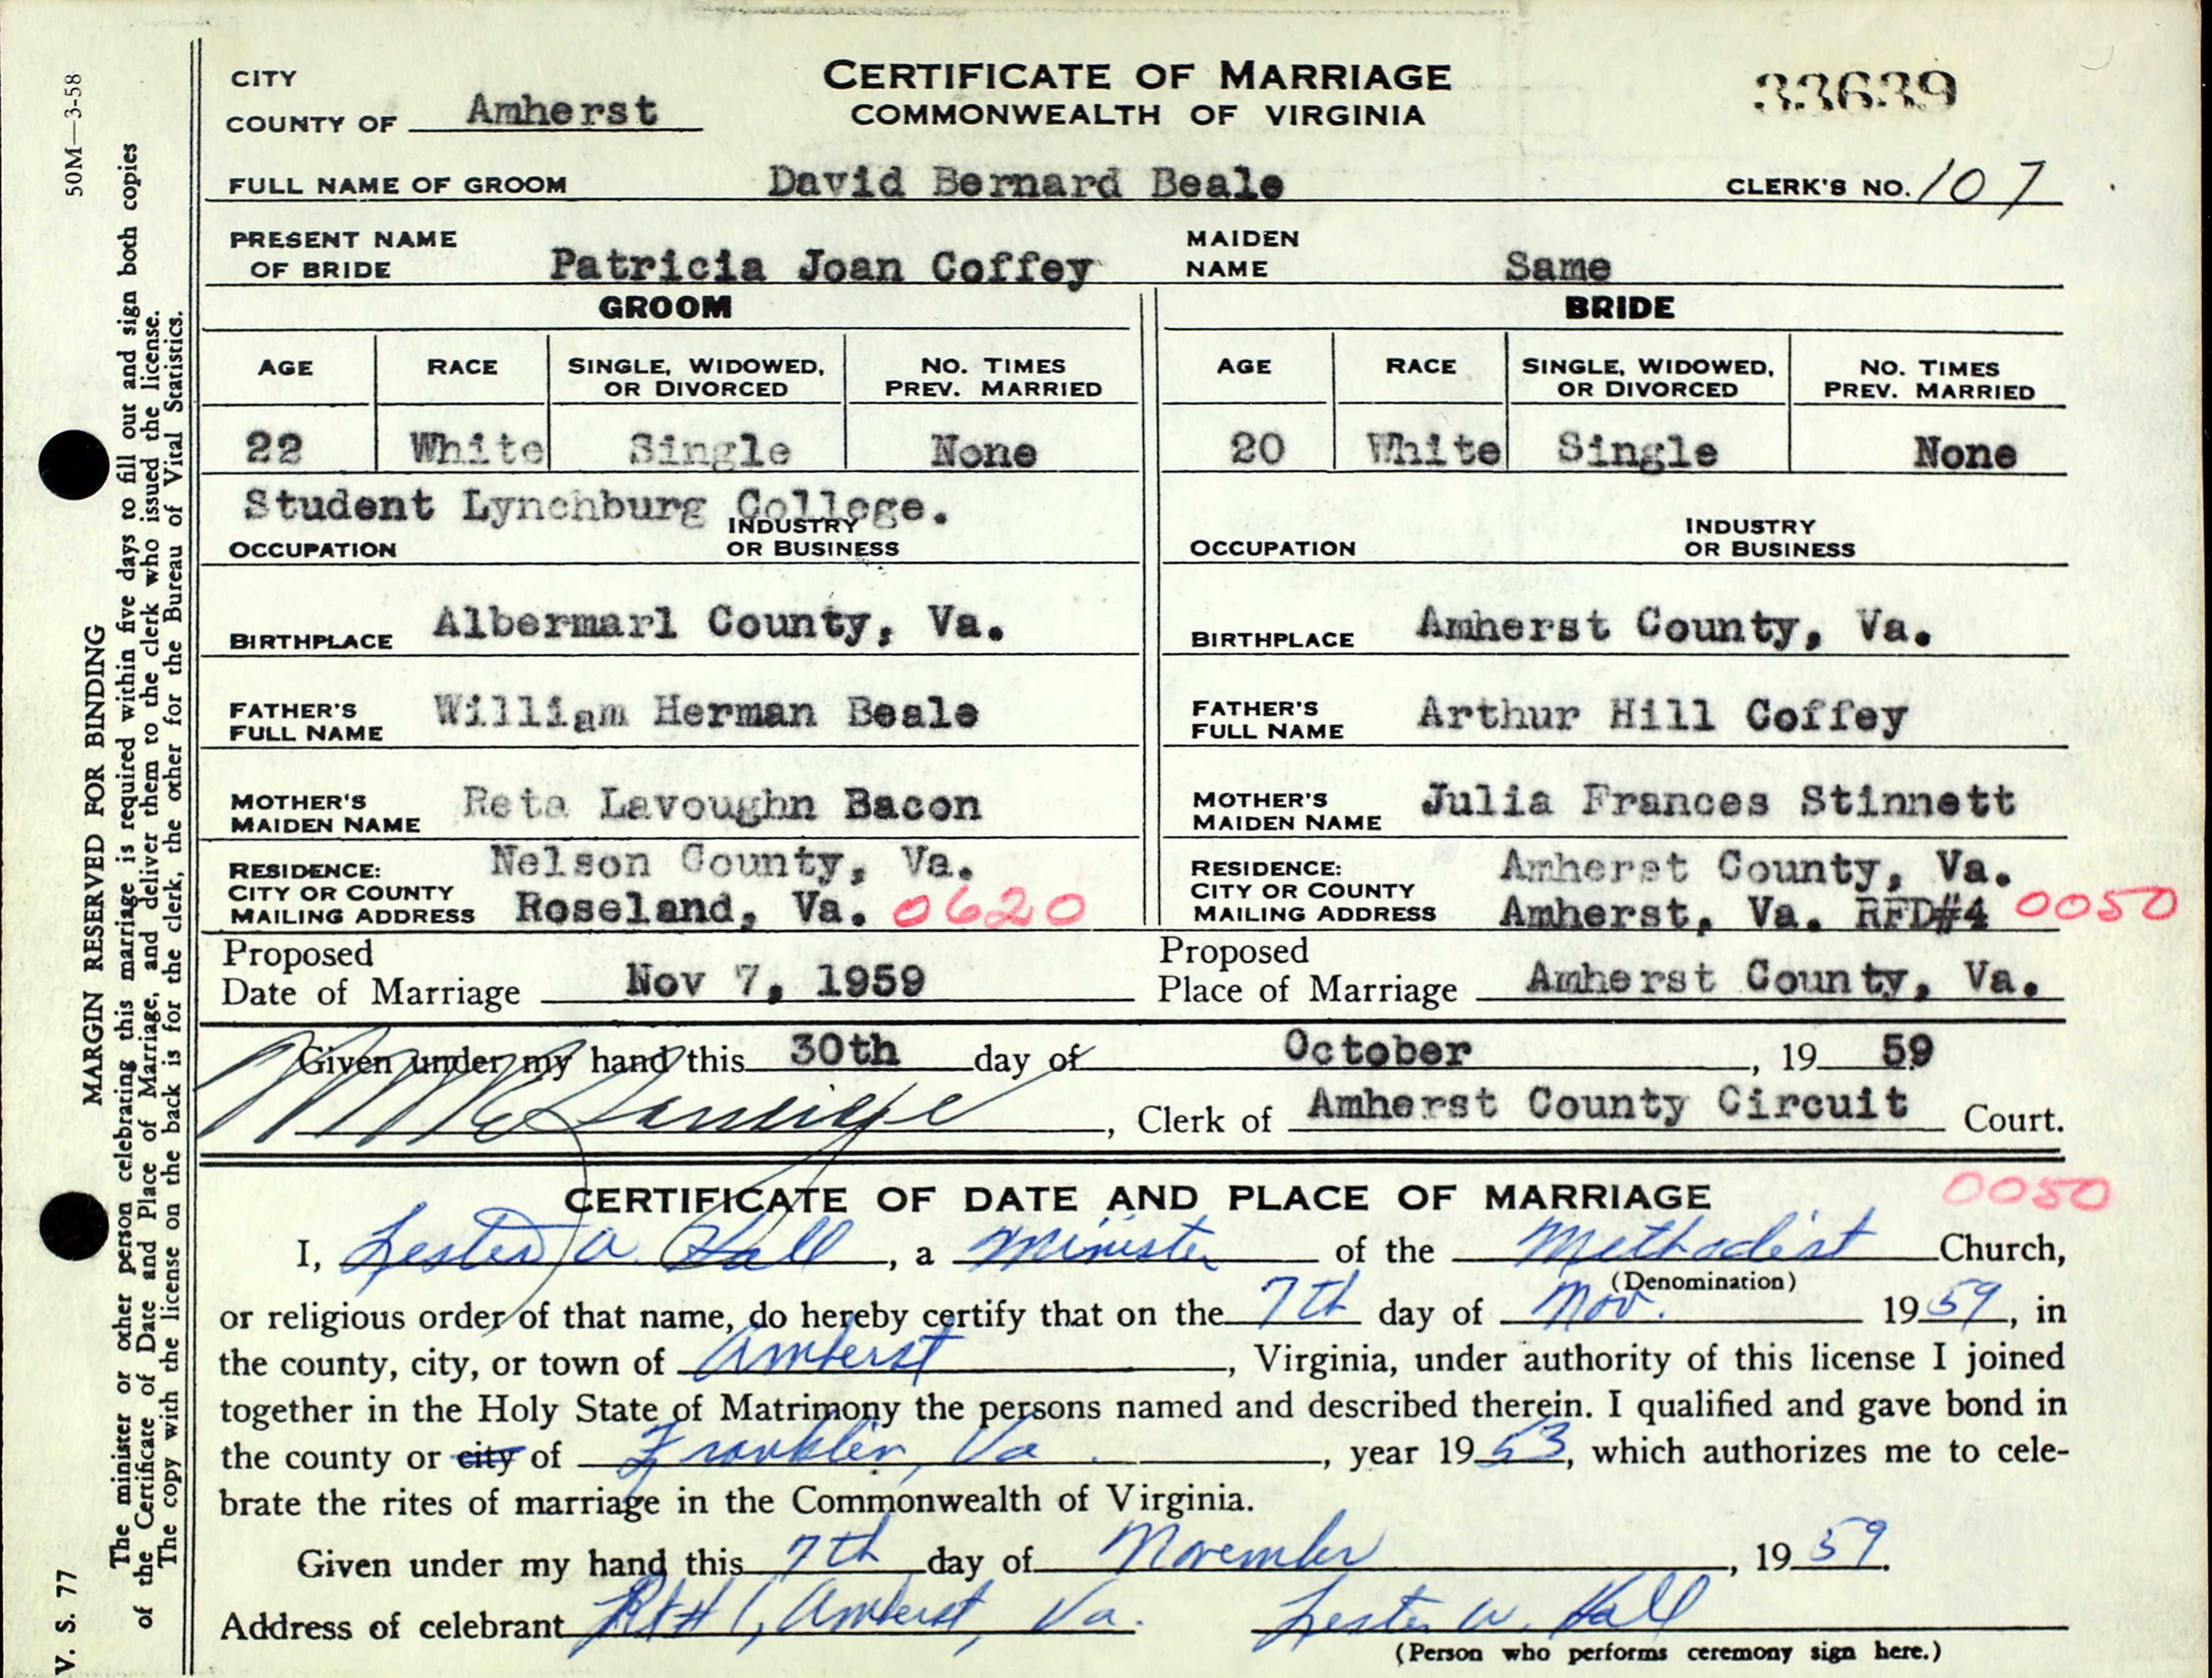 CITY
COUNTY OF Amherst
CERTIFICATE OF MARRIAGE
COMMONWEALTH OF VIRGINIA
33639
FULL NAME OF GROOM David Bernard Beale CLERK'S NO. 107
PRESENT NAME OF BRIDE Patricia Joan Coffey MAIDEN NAME Same
GROOM BRIDE
AGE RACE SINGLE, WIDOWED, OR DIVORCED NO. TIMES PREV. MARRIED AGE RACE SINGLE, WIDOWED, OR DIVORCED NO. TIMES PREV. MARRIED
22 White Single None 20 White Single None
Student Lynchburg College.
OCCUPATION INDUSTRY OR BUSINESS OCCUPATION INDUSTRY OR BUSINESS
BIRTHPLACE Albermarl County, Va. BIRTHPLACE Amherst County, Va.
FATHER'S FULL NAME William Herman Beale FATHER'S FULL NAME Arthur Hill Coffey
MOTHER'S MAIDEN NAME Reta Lavoughn Bacon MOTHER'S MAIDEN NAME Julia Frances Stinnett
RESIDENCE: CITY OR COUNTY Nelson County, Va. RESIDENCE: CITY OR COUNTY Amherst County, Va.
MAILING ADDRESS Roseland, Va. 0620 MAILING ADDRESS Amherst, Va. RFD#4 0050
Proposed Date of Marriage Nov 7, 1959 Proposed Place of Marriage Amherst County, Va.
Given under my hand this 30th day of October, 19 59
, Clerk of Amherst County Circuit Court.
CERTIFICATE OF DATE AND PLACE OF MARRIAGE 0050
I, Lester A. Hall, a Minister of the Methodist Church,
(Denomination)
or religious order of that name, do hereby certify that on the 7th day of Nov. 1959, in
the county, city, or town of Amherst, Virginia, under authority of this license I joined
together in the Holy State of Matrimony the persons named and described therein. I qualified and gave bond in
the county or city of Franklin, Va., year 1953, which authorizes me to cele-
brate the rites of marriage in the Commonwealth of Virginia.
Given under my hand this 7th day of November, 1959.
Address of celebrant Rt # 1, Amherst, Va. Lester A. Hall
(Person who performs ceremony sign here.)
50M—3-58
MARGIN RESERVED FOR BINDING
V. S. 77
The minister or other person celebrating this marriage is required within five days to fill out and sign both copies
of the Certificate of Date and Place of Marriage, and deliver them to the clerk who issued the license.
The copy with the license on the back is for the clerk, the other for the Bureau of Vital Statistics.